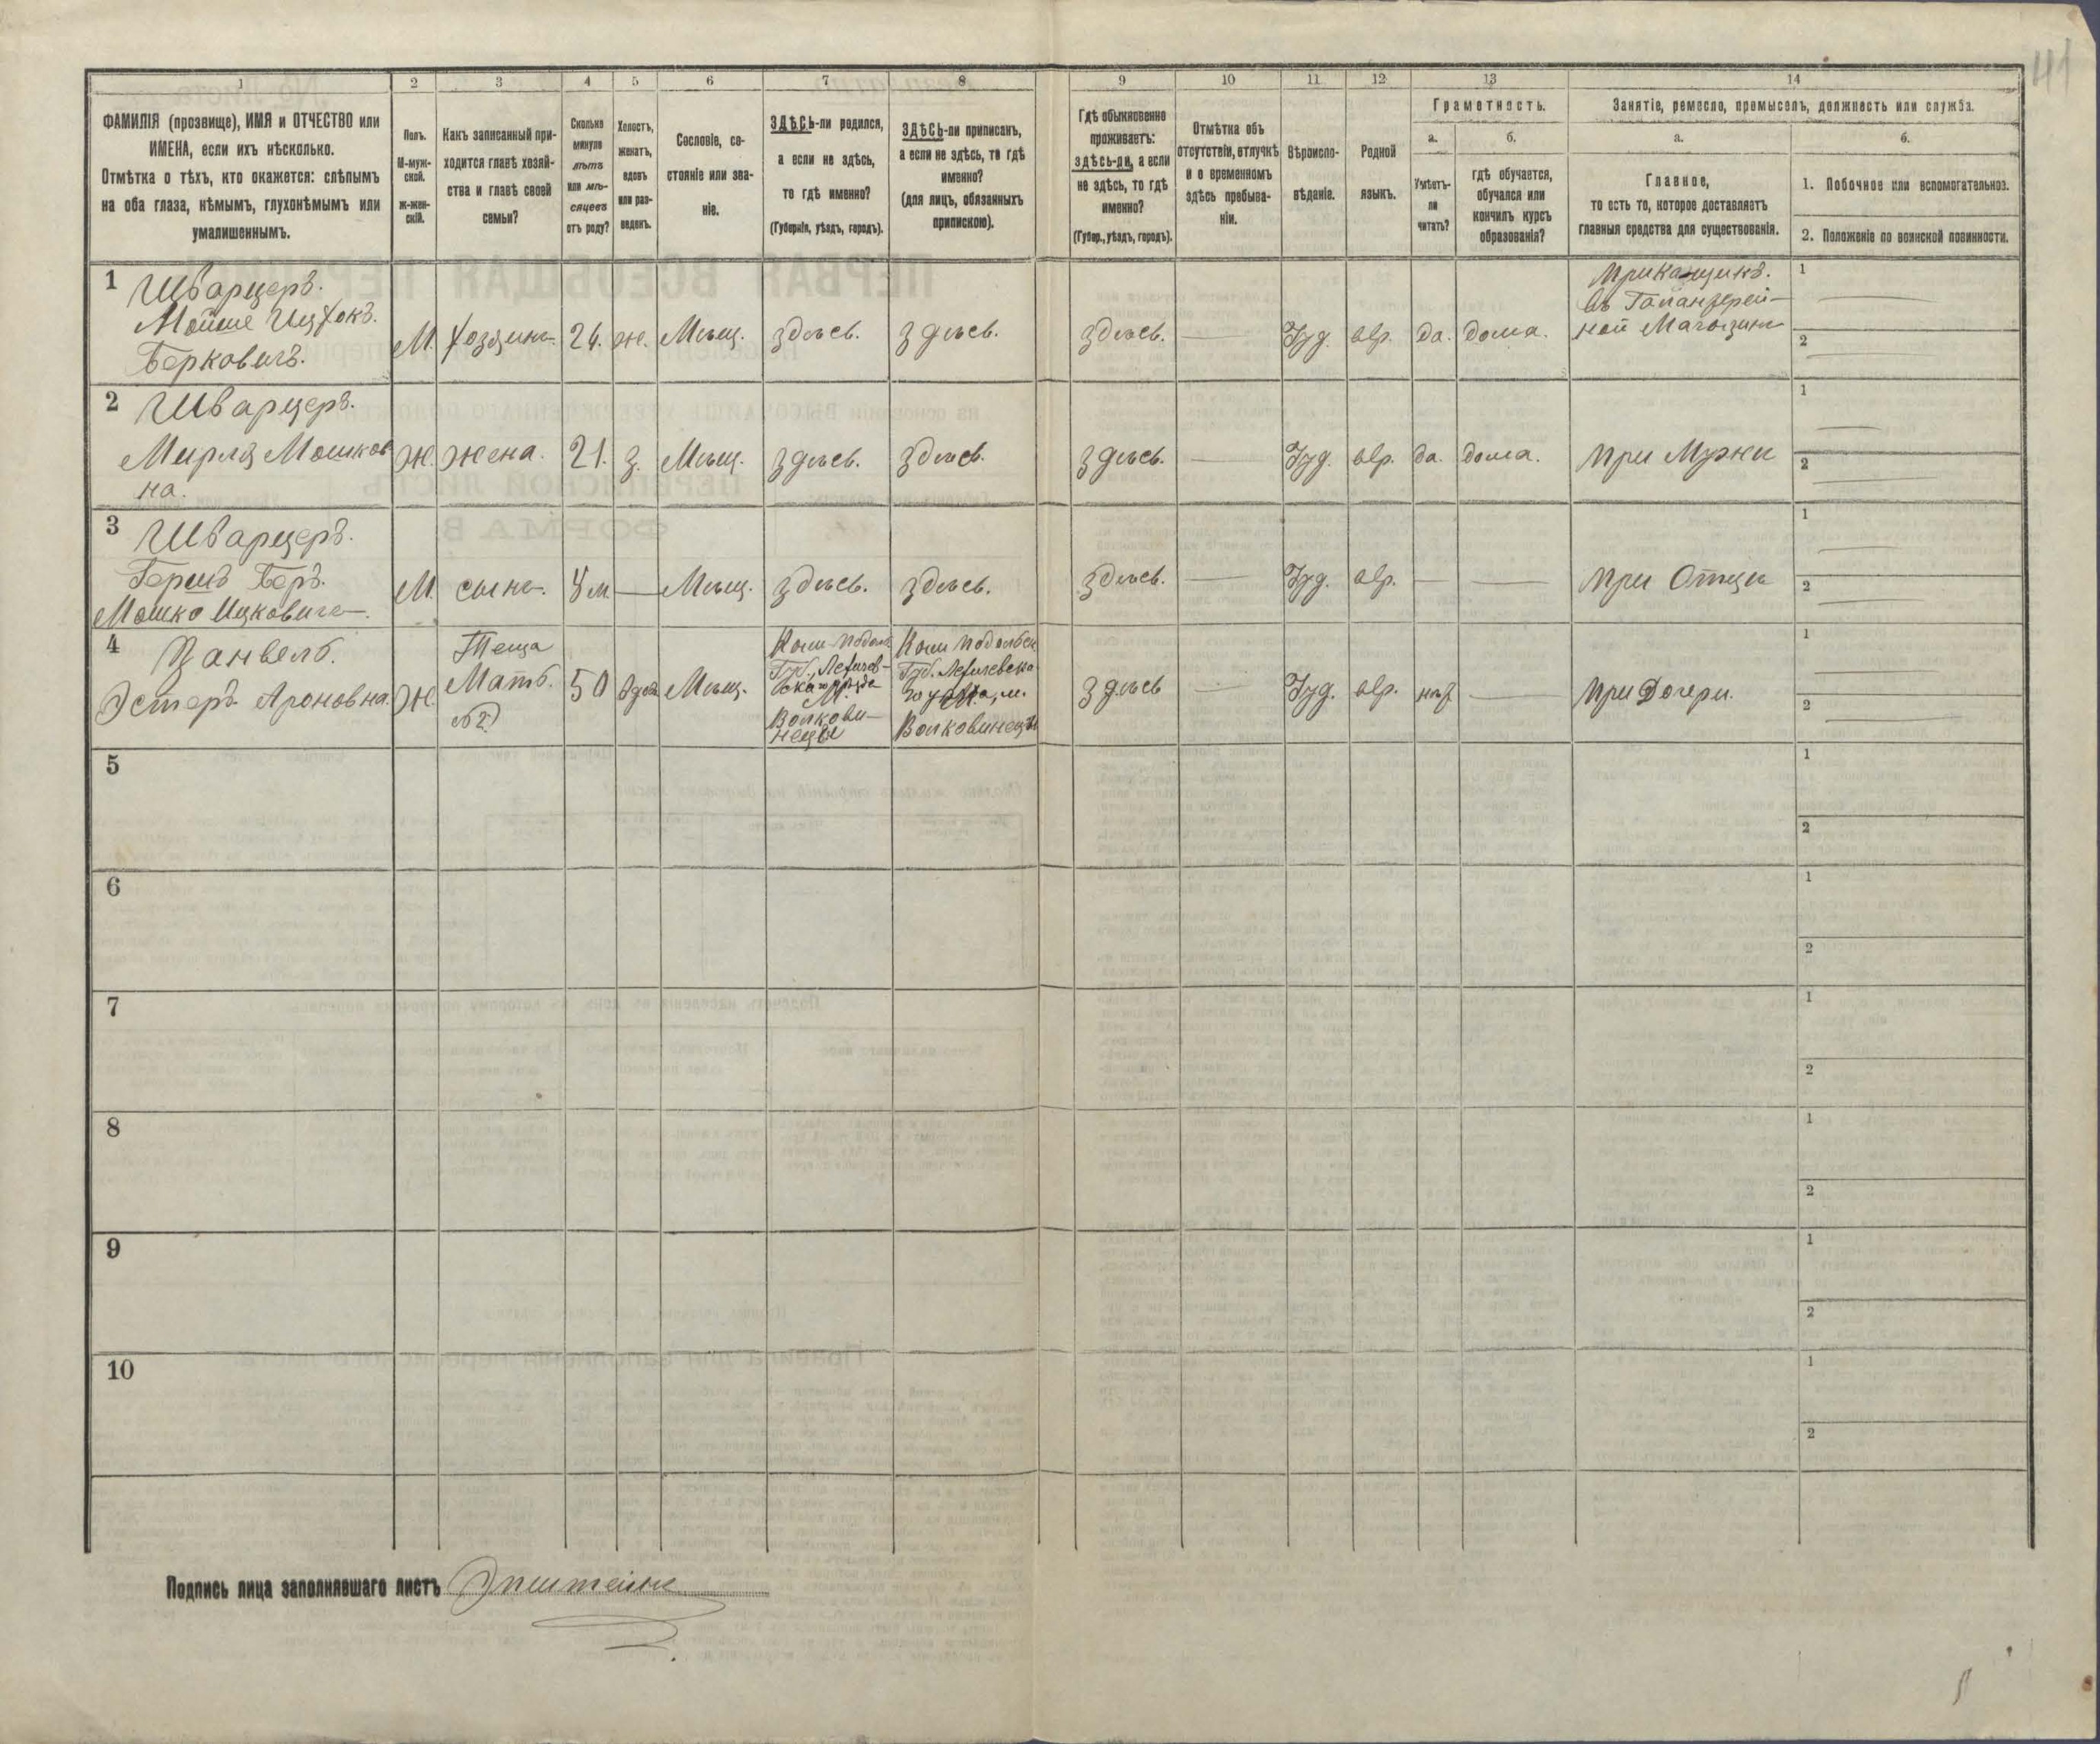 41
1 2 3 4 5 6 7 8 9 10 11 12 13 14
ФАМИЛІЯ (прозвище), ИМЯ и ОТЧЕСТВО или
ИМЕНА, если ихъ нѣсколько.
Отмѣтка о тѣхъ, кто окажется: слѣпымъ
на оба глаза, нѣмымъ, глухонѣмымъ или
умалишеннымъ.
Полъ.
М-муж-
ской.
Ж-жен-
скій.
Какъ записанный при-
ходится главѣ хозяй-
ства и главѣ своей
семьи?
Сколько
минуло
лѣтъ
или мѣ-
сяцевъ
отъ роду?
Холостъ,
женатъ,
вдовъ
или раз-
веденъ.
Сословіе, со-
стояніе или зва-
ніе.
ЗДѢСЬ-ли родился,
а если не здѣсь,
то гдѣ именно?
(Губернія, уѣздъ, городъ).
ЗДѢСЬ-ли приписанъ,
а если не здѣсь, то гдѣ
именно?
(для лицъ, обязанныхъ
припискою).
Гдѣ обыкновенно
проживаетъ:
здѣсь-ли, а если
не здѣсь, то гдѣ
именно?
(Губер., уѣздъ, городъ).
Отмѣтка объ
отсутствіи, отлучкѣ
и о временномъ
здѣсь пребыва-
ніи.
Вѣроиспо-
вѣданіе.
Родной
языкъ.
Грамотность.
а.
Умѣетъ-
ли
читать?
б.
гдѣ обучается,
обучался или
кончилъ курсъ
образованія?
Занятіе, ремесло, промыселъ, должность или служба.
а.
Главное,
то есть то, которое доставляетъ
главныя средства для существованія.
б.
1. Побочное или вспомогательное.
2. Положеніе по воинской повинности.
1 Шварцеръ.
Мойше Ицхокъ.
Берковичъ.
М. хозяинъ. 26. ж. Мѣщ. здѣсь. здѣсь. здѣсь. Іуд. евр. да. дома.
Приказщикъ.
въ Галантерей-
ной Магазинѣ
1
2
2 Шварцеръ.
Мирля Мошков
на.
Ж. жена. 21. з. Мѣщ. здѣсь. здѣсь. здѣсь. Іуд. евр. да. дома. при Мужи
1
2
3 Шварцеръ.
Гершъ Беръ.
Мошко Ицковичъ.
М. сынъ. Мѣщ. здѣсь. здѣсь. здѣсь. Іуд. евр. при Отцѣ
1
2
4
Эстеръ Ароновна.
Ж. Теща
Мать.
№2)
50 Мѣщ.
Губ.
Волкови-
нецы
Губ. Летичевска
го уѣзда, м.
Волковинецы
здѣсь Іуд. евр. нѣт при Дочери.
1
2
5
1
2
6
1
2
7
1
2
8
1
2
9
1
2
10
1
2
Подпись лица заполнявшаго листъ Эпштейнъ